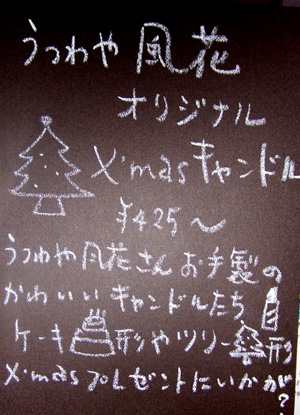 うつわや 風花
オリジナル
X'masキャンドル
¥425〜
うつわや風花さんお手製の
かわいいキャンドルたち
ケーキ形やツリー形
X'masプレゼントにいかが?